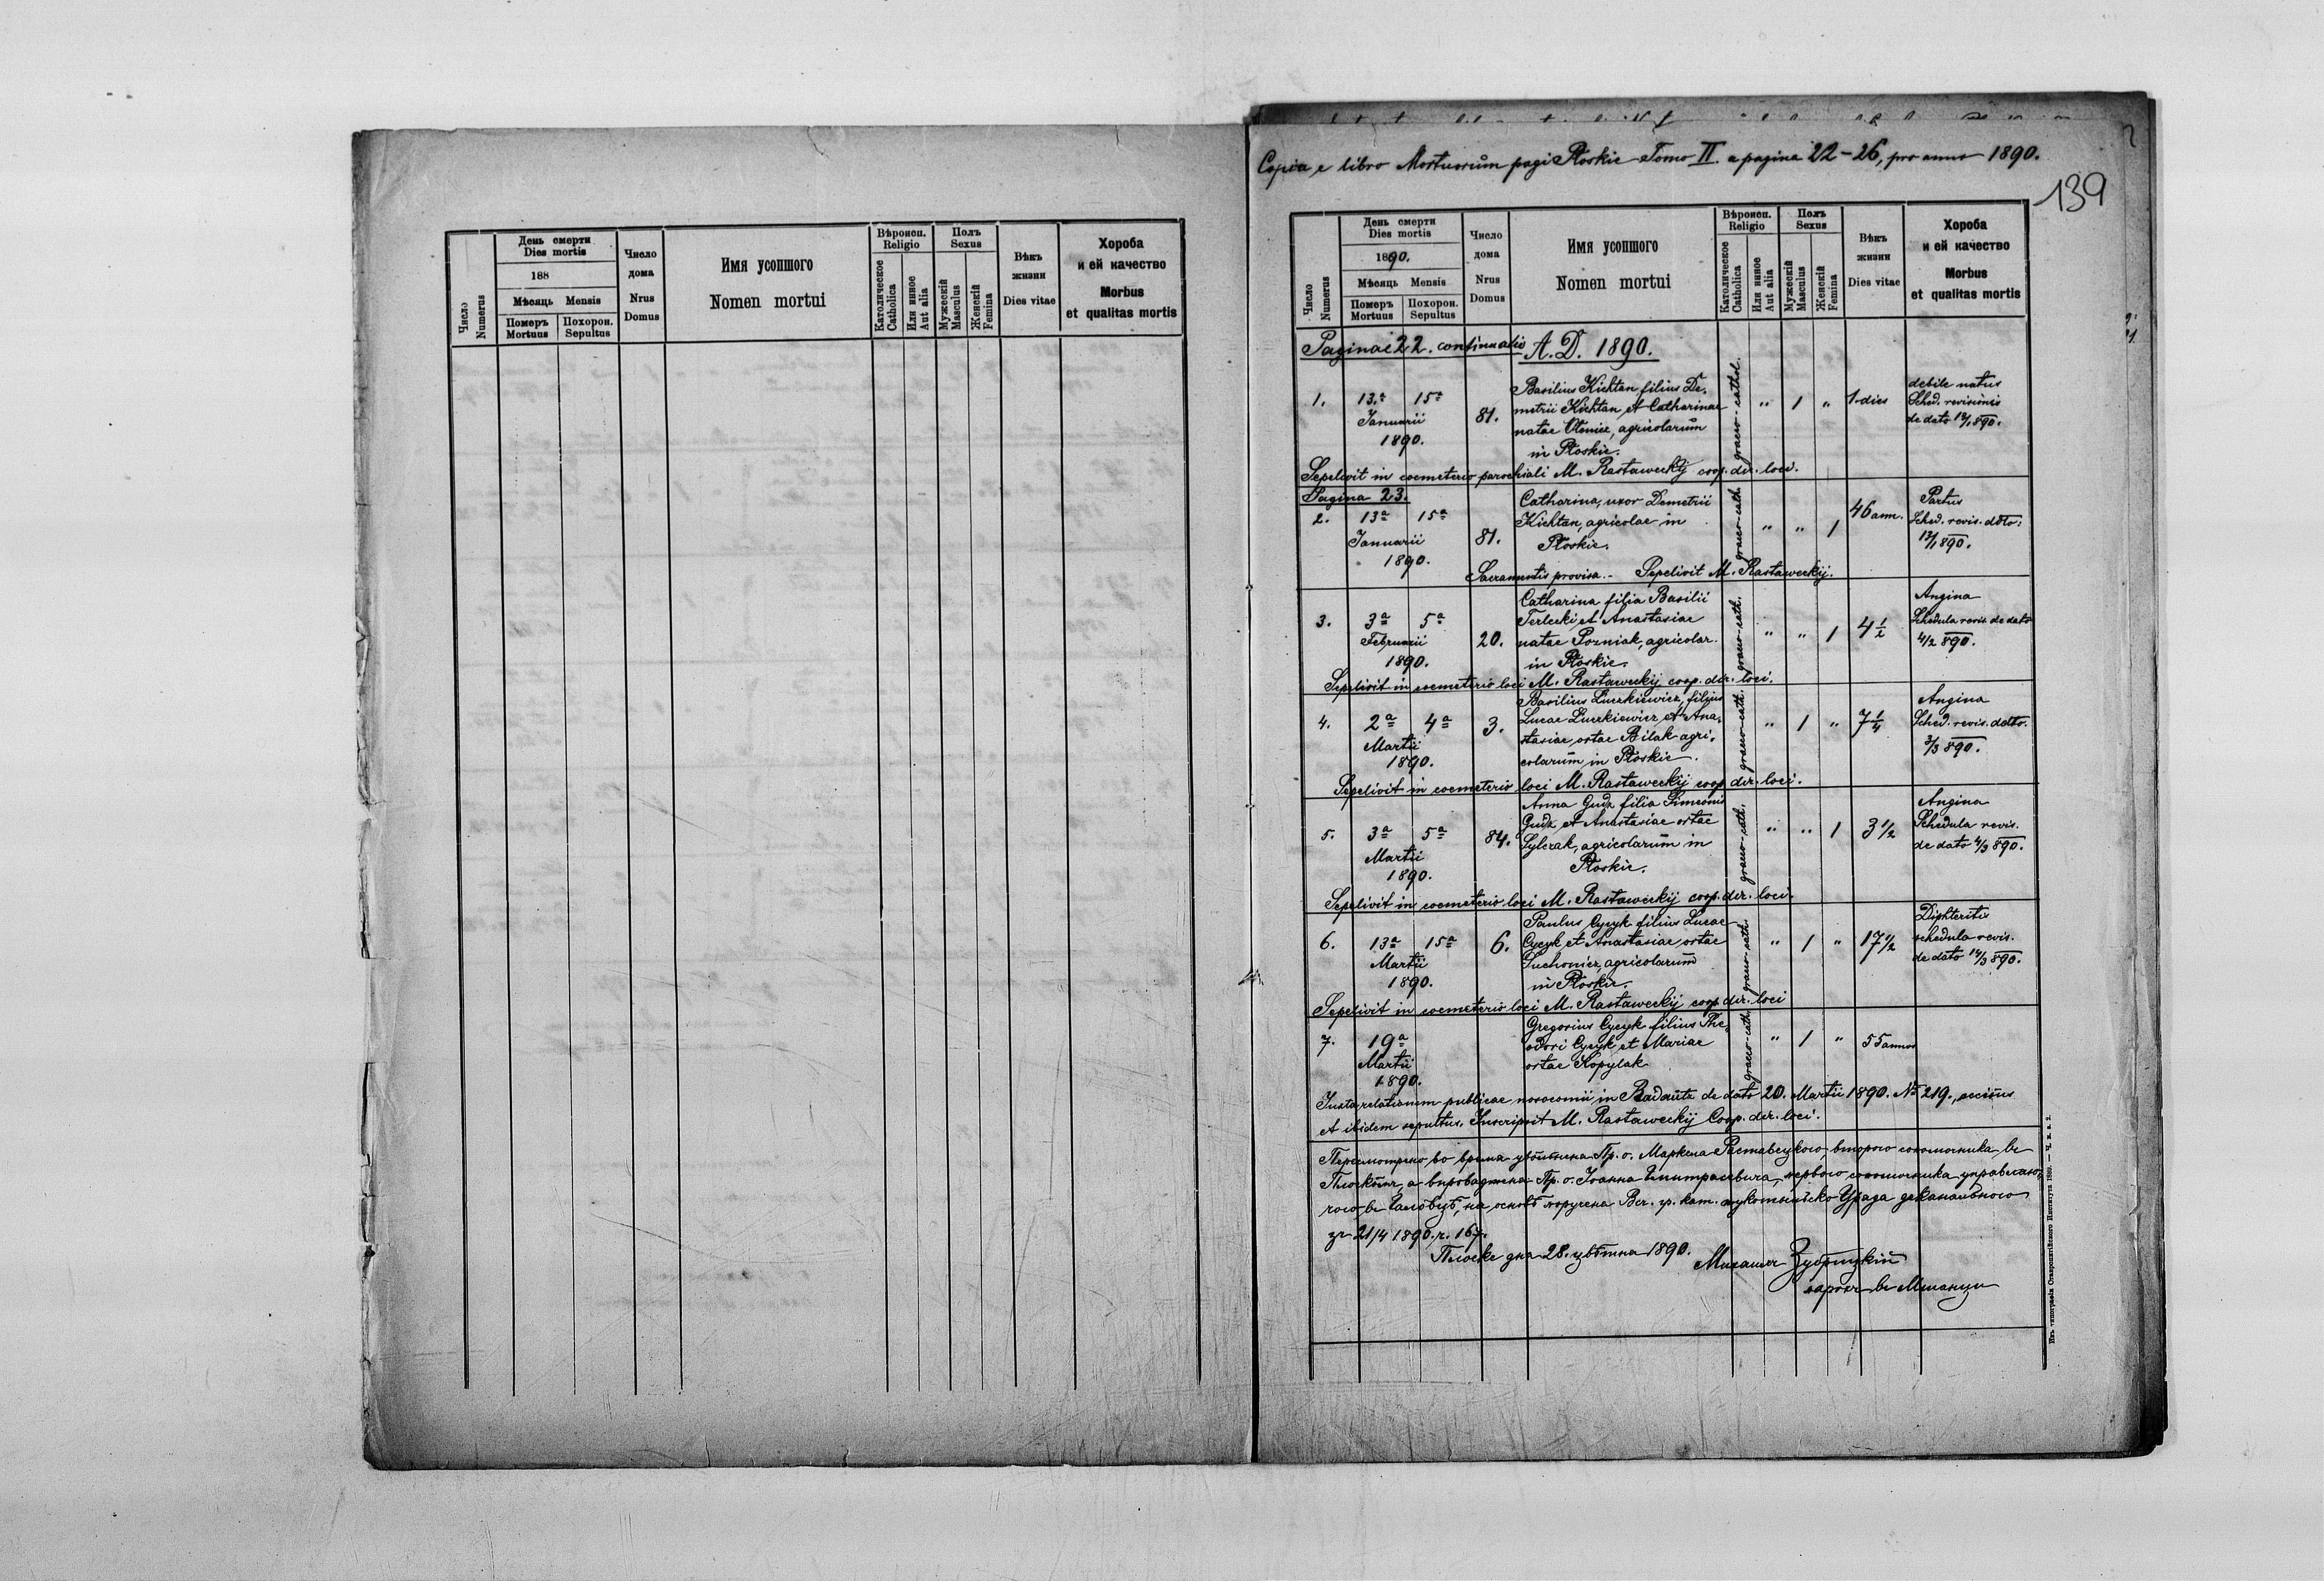 Число Numerus
День смерти
Dies mortis
188
Мѣсяць Mensis
Померъ Mortuus
Похорон. Sepultus
Число дома
Nrus Domus
Имя усопшого
Nomen mortui
Вѣроисп. Religio
Католическое Catholica
Или инное Aut alia
Полъ Sexus
Мужескій Masculus
Женскій Femina
Вѣкъ жизни
Dies vitae
Хороба и ей качество
Morbus et qualitas mortis
Copia e libro Mortuorum pagi Płoskie Tomo II. a pagina 22-26, pro anno 1890.
139
Число Numerus
День смерти
Dies mortis
1890.
Мѣсяць Mensis
Померъ Mortuus
Похорон. Sepultus
Число дома
Nrus Domus
Имя усопшого
Nomen mortui
Вѣроисп. Religio
Католическое Catholica
Или инное Aut alia
Полъ Sexus
Мужескій Masculus
Женскій Femina
Вѣкъ жизни
Dies vitae
Хороба и ей качество
Morbus et qualitas mortis
Paginae 22. continuatio A. D. 1890.
1. 13.a 15a Januarii 1890. 81.
Basilius Kichtan filius De-
metrii Kichtan, et Catharinae
natae, agricolarum
in Płoskie.
graeco-cathol. " 1 " 1 dies
debile natus
Sched. revisionis
de dato 13/1 890.
Sepelivit in coemeterio parochiali M. Rastaweckij coop. dir. loci.
Pagina 23.
2. 13a 15a Januarii 1890. 81.
Catharina, uxor Demetrii
Kichtan, agricolae in
Płoskie.
graeco-cath. " " 1 46 ann.
Partus
Sched. revis. ddto:
13/1 890.
Sacramentis provisa. - Sepelivit M. Rastaweckij.
3. 3a 5a Februarii 1890. 20.
Catharina filia Basilii
Terlecki et Anastasiae
natae Porniak, agricolar.
in Płoskie.
graeco-cath. " " 1 4 1/2
Angina
Schedula revis. de dato
4/2 890.
Sepelivit in coemeterio loci M. Rastaweckij coop. dir. loci.
4. 2a 4a Martii 1890. 3.
Basilius Luczkiewicz, filius
Lucae Luczkiewicz et Ana-
stasiae, ortae Bilak agri-
colarum in Płoskie.
graeco-cath. " 1 " 7 1/4
Angina
Sched. revis. ddto.
3/3 890.
Sepelivit in coemeterio loci M. Rastaweckij coop. dir. loci.
5. 3a 5a Martii 1890. 84.
Anna Gudz filia Simeonis
Gudz et Anastasiae ortae
Sylczak, agricolarum in
Płoskie.
graeco-cath. " " 1 3 1/2
Angina
Schedula revis.
de dato 4/3 890.
Sepelivit in coemeterio loci M. Rastaweckij coop. dir. loci.
6. 13a 15a Martii 1890. 6.
Paulus Cycyk filius Lucae
Cycyk et Anastasiae ortae
Suchonicz, agricolarum
in Płoskie.
graeco-cath. " 1 " 17 1/2
Diphteritis
schedula revis.
de dato 14/3 890.
Sepelivit in coemeterio loci M. Rastaweckij coop. dir. loci
7. 19a Martii 1890.
Gregorius Cycyk filius The-
odori Cycyk et Mariae
ortae Kopylak
graeco-cath. " 1 " 55 annos
Juxta relationem publicae nosocomii in Radautz de dato 20. Martii 1890. No 219., occisus
et ibidem sepultus. Inscripsit M. Rastaweckij Coop. dir. loci.
Пересмотрено во время Пр. о. Маркела Раставецкого, второго сопомочника въ
а впроваджена Пр. о. Іоанна первого сопомочника управляю-
чого въ на основѣ порученя Вст. гр. кат. Уряда деканального
зъ 21/4 1890. р. 167.
Плоске дня 28. цвѣтня 1890. Михаилъ Зубрицкій
парохъ въ Мшанци
Изъ типографіи Ставропигійского Института 1889. — Ч. в. з. 2.